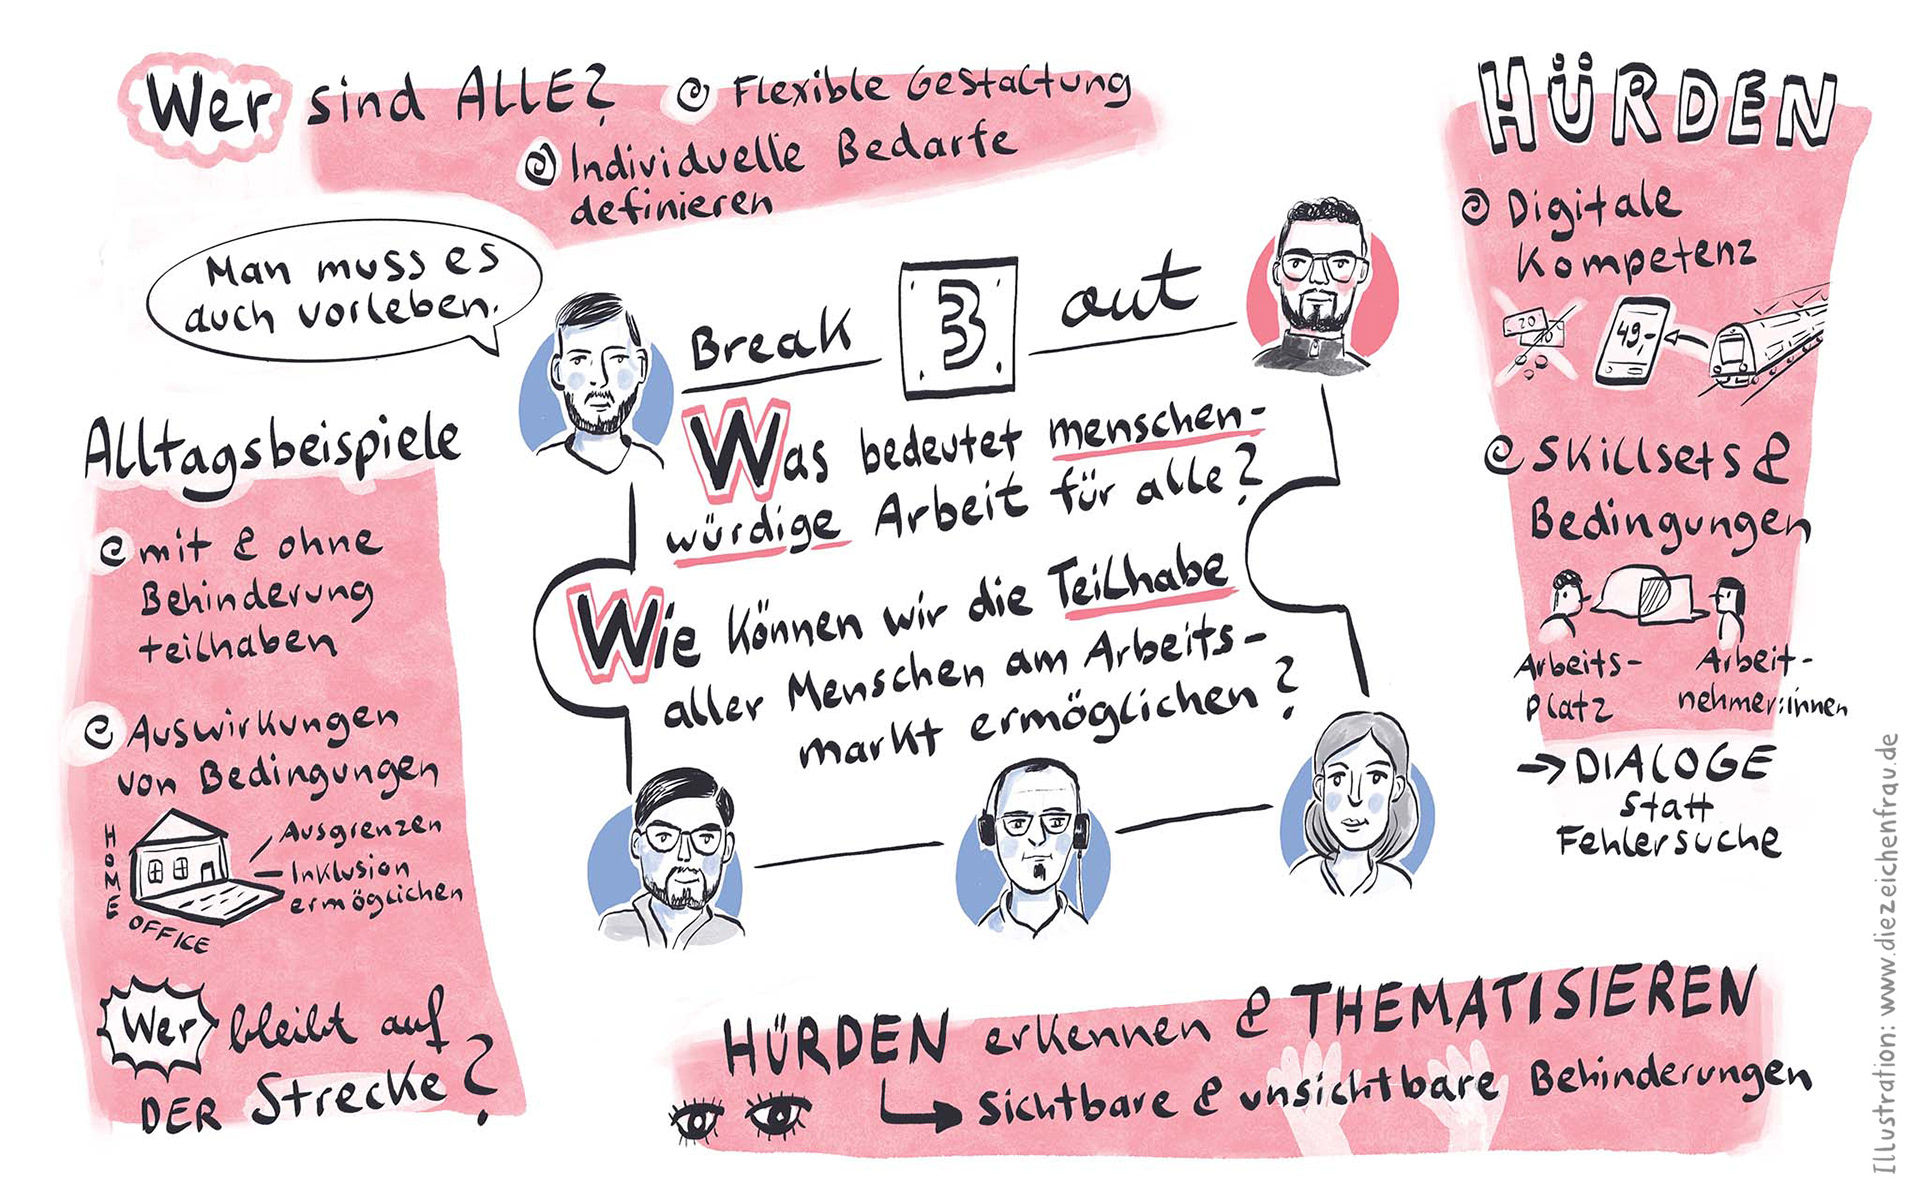 Wer sind ALLE?
Flexible Gestaltung
Individuelle Bedarfe
definieren
Man muss es
auch vorleben.
Break 3 out
Was bedeutet menschen-
würdige Arbeit für alle?
Wie können wir die Teilhabe
aller Menschen am Arbeits-
markt ermöglichen?
Alltagsbeispiele
mit & ohne
Behinderung
teilhaben
Auswirkungen
von Bedingungen
HOME
OFFICE
Ausgrenzen
Inklusion
ermöglichen
Wer bleibt auf
DER Strecke?
HÜRDEN
Digitale
Kompetenz
20
10
49,-
Skillsets &
Bedingungen
Arbeits-
platz
Arbeit-
nehmer:innen
→ DIALOGE
statt
Fehlersuche
HÜRDEN erkennen & THEMATISIEREN
sichtbare & unsichtbare Behinderungen
Illustration: www.diezeichenfrau.de